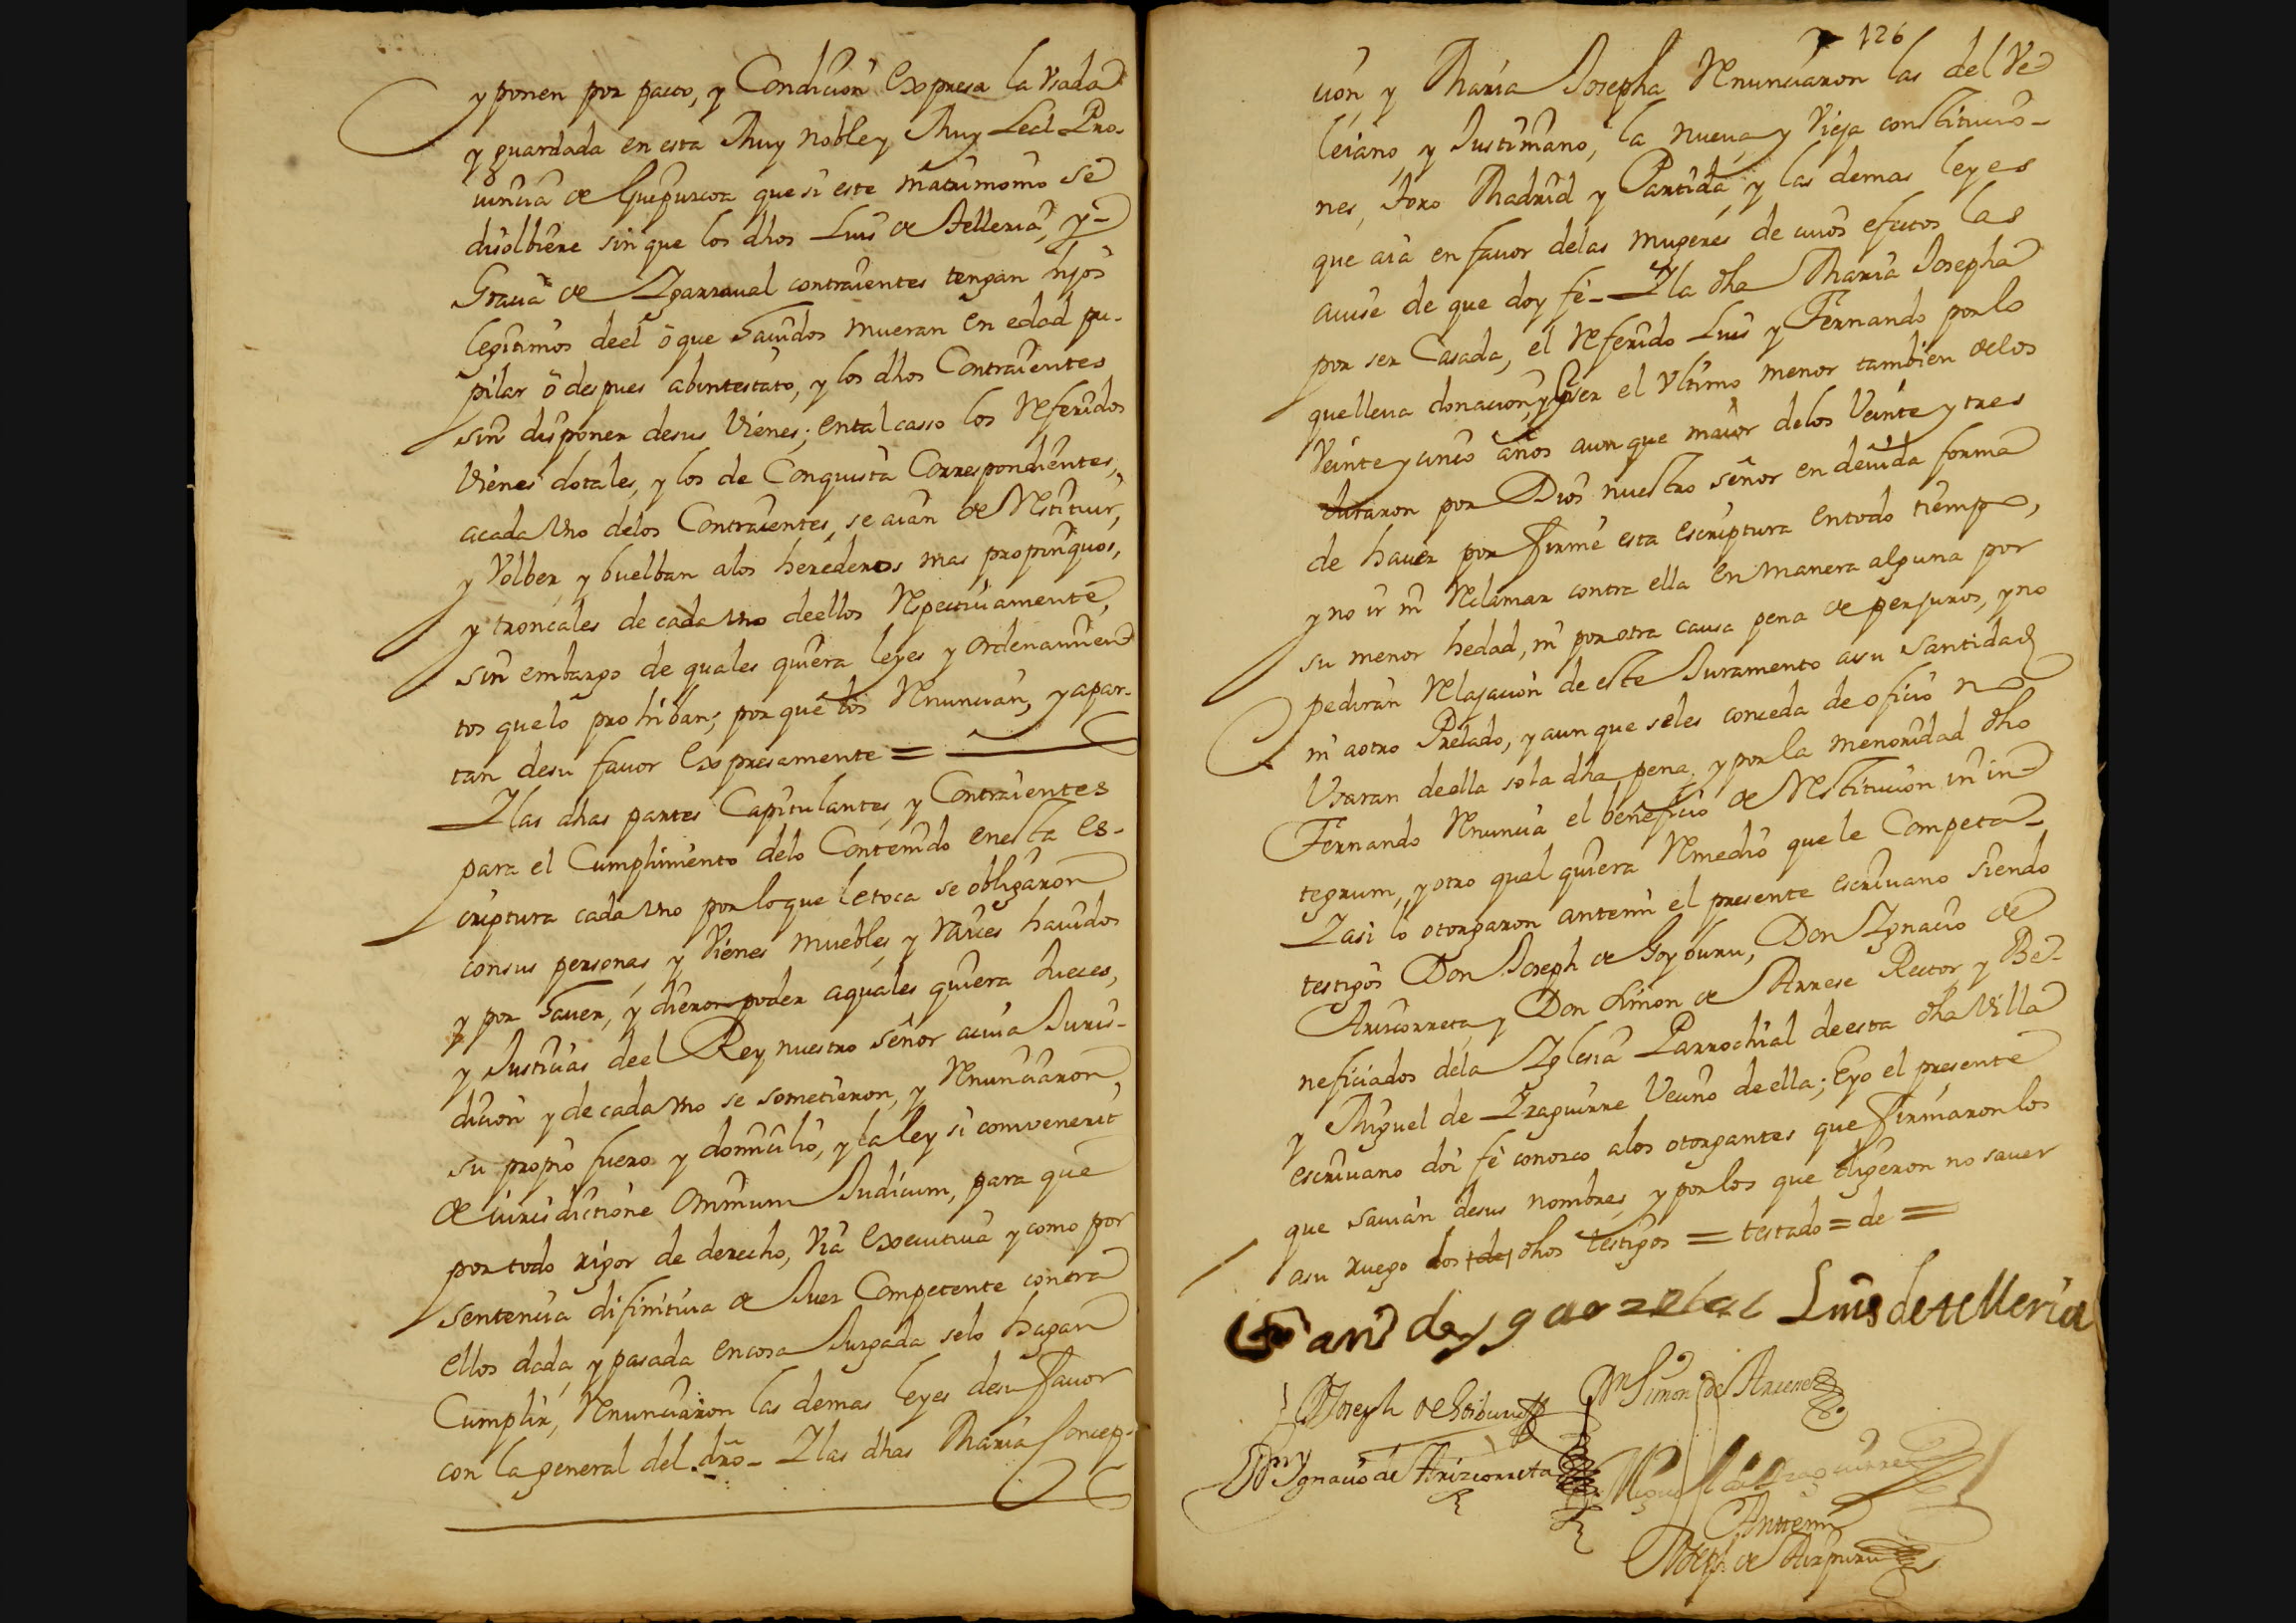 y ponen por pacto, y Condicion Expresa la Vsada
y guardada en esta Muy noble y Muy Leal Pro-
uincia de Guipuzcoa que si este matrimonio se
disolbiere sin que los dhos Luis de Telleria, y
Gracia de Ygarzaual contraientes tengan hijos
legitimos deel ò que hauidos mueran en edad pu-
pilar ò despues abintestato, y los dhos Contraientes
sin disponer desus Vienes; ental casso los Referidos
Vienes dotales, y los de Conquista Correspondientes,
acada Vno delos Contraientes, se aian de Restituir,
y Volber, y buelban alos herederos mas propinquos,
y troncales de cada Vno deellos Respectiuamente,
sin embargo de quales quiera leyes y ordenamien
tos quelo prohiban; porque los Renuncian, y apar-
tan desu fauor Expresamente =
Ylas dhas partes Capitulantes, y Contraientes
para el Cumplimiento delo Contenido enesta es-
criptura cada Vno por loque letoca se obligaron
consus personas, y Vienes muebles, y raices hauidos
y por hauer, y dieron poder aquales quiera Jueces,
y Justicias deel Rey nuestro señor acuia Juris-
dicion y de cada Vno se sometieron, y Renunciaron,
su propio fuero y domicilio, y la ley si convenerit
de iurisdictione Omnium Judicum, para que
por todo rigor de derecho, Via Executiua y como por
sentencia difinitiua de Juez Competente contra
ellos dada, y pasada encosa Juzgada selo hagan
Cumplir, Renunciaron las demas leyes desu fauor
con la general del dro- Ylas dhas Maria Concep-
126
cion, y Maria Josepha Renunciaron las del Ve
leiano, y Justiniano, la nueua, y Vieja constitucio-
nes, toro Madrid y Partida, y las demas leyes
que aia en fauor delas mugeres de cuios efectos las
auise de que doy fè- Yla dha Maria Josepha
por ser Casada, el Referido Luis y Fernando porlo
quelleua donacion, y por ser el Vltimo menor tambien delos
Veinte y cinco años aunque maior delos Veinte y tres
Juraron por Dios nuestro señor en deuida forma
de hauer por firme esta escriptura entodo tiempo,
y no ir ni Reclamar contra ella en manera alguna por
su menor hedad, ni por otra causa pena de perjuros, y no
pediran Relajacion de este Juramento asu Santidad
ni aotro Prelado, y aun que seles conceda de oficio no
Vsaran deella sola dha pena, y por la menoridad dho
Fernando Renuncia el beneficio de Restitucion in in
tegrum, y otro qual quiera Remedio que le Competa-
Yasi lo otorgaron antemi el presente escriuano siendo
testigos Don Joseph de Goyburu, Don Ygnacio de
Arizcorreta, y Don Simon de Arrese Rector y Be-
neficiados dela Yglesia Parrochial deesta dha Villa
y Miguel de Yraguirre Vecino deella; Eyo el presente
escriuano doi fè conozco alos otorgantes que firmaron los
que sauian desus nombres, y por los que digeron no sauer
asu ruego los de dhos testigos = testado = de =
de ygarzabal Luis de telleria
Joseph de Goiburu Dn Simon de Arrese
Dn Ygnacio de Arizcorreta Miguel de Yraguirre
Anttemi
Joseph de Aizpuru